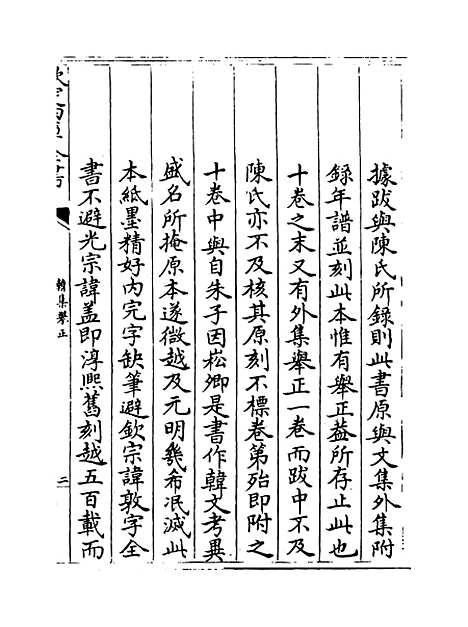 據跋與陳氏所錄則此書原與文集外集附
録年譜並刻此本惟有舉正葢所存止此也
十卷之末又有外集舉正一卷而跋中不及
陳氏亦不及核其原刻不標卷第殆即附之
十卷中與自朱子因崧卿是書作韓文考異
盛名所掩原本遂微越及元明幾希泯滅此
本紙墨精好内完字缺筆避欽宗諱敦字全
書不避光宗諱盖即淳熙舊刻越五百載而
欽定四庫全書
韓集舉正
二